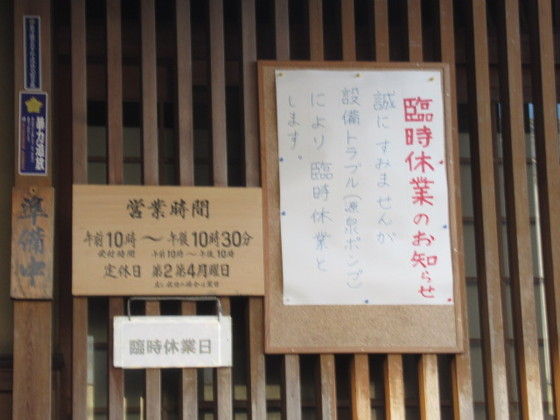 臨時休業のお知らせ
誠にすみませんが
設備トラブル(源泉ポンプ)
により臨時休業と
します。
営業時間
午前10時～午後10時30分
受付時間 午前10時～午後10時
定休日 第2第4月曜日
臨時休業日
準備中
暴力追放